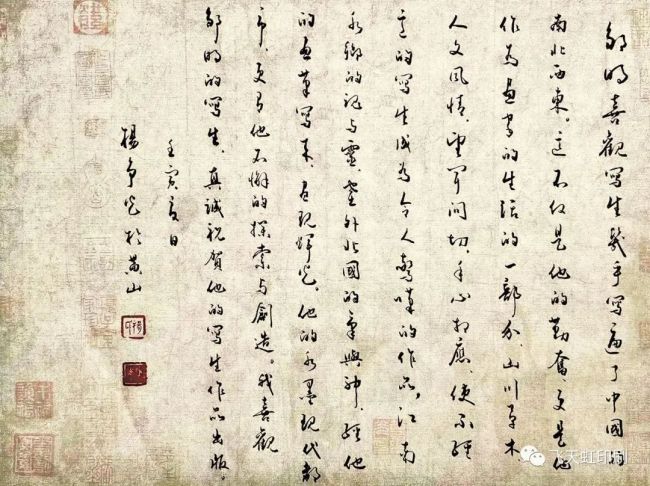 鄒明喜歡寫生幾乎寫遍了中國的
南北西東。這不仅是他的勤奮、更是他
作為畫家的生活的一部分、山川草木
人文風情、望聞問切、手心相應、使不經
意的寫生成為令人驚嘆的作品。江南
水鄉的与靈、塞外北國的氣與神、經他
的畫筆寫來、盡現輝光。他的水墨現代都
市、更有他不懈的探索与創造。我喜歡
鄒明的寫生、真誠祝賀他的寫生作品出版。
壬寅夏日
楊爭光於黃山
飞天虹印刷